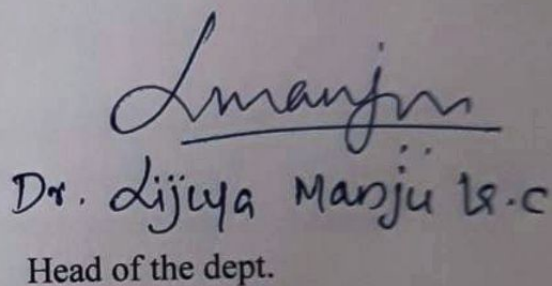 Lmanjm
Dr. Lijiya Manju K.C
Head of the dept.